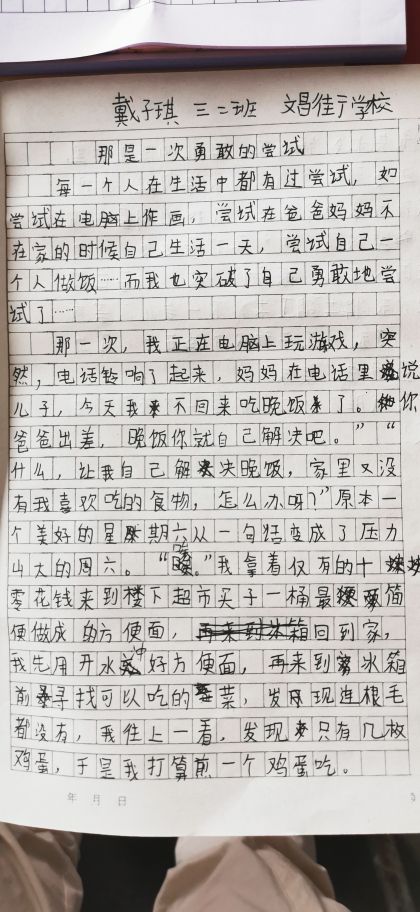 戴子琪 三二班 文昌街学校
那是一次勇敢的尝试
每一个人在生活中都有过尝试，如
尝试在电脑上作画，尝试在爸爸妈妈不
在家的时候自己生活一天，尝试自己一
个人做饭……而我也突破了自己勇敢地尝
试了……
那一次，我正在电脑上玩游戏，突
然，电话铃响了起来，妈妈在电话里说
儿子，今天我不回来吃晚饭了。你
爸爸出差，晚饭你就自己解决吧。”“
什么，让我自己解决晚饭，家里又没
有我喜欢吃的食物，怎么办呀？”原本一
个美好的星期六从一句话变成了压力
山大的周六。“唉。”我拿着仅有的十块
零花钱来到楼下超市买了一桶最简
便做成的方便面，回到家，
我先用开水冲好方便面，再来到冰箱
前寻找可以吃的菜，发现连根毛
都没有，我往上一看，发现只有几枚
鸡蛋，于是我打算煎一个鸡蛋吃。
年 月 日